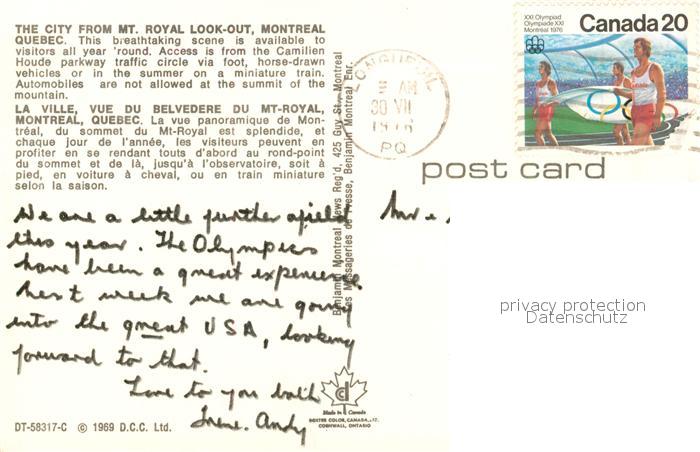 THE CITY FROM MT. ROYAL LOOK-OUT, MONTREAL
QUEBEC. This breathtaking scene is available to
visitors all year 'round. Access is from the Camilien
Houde parkway traffic circle via foot, horse-drawn
vehicles or in the summer on a miniature train.
Automobiles are not allowed at the summit of the
mountain.
LA VILLE, VUE DU BELVEDERE DU MT-ROYAL,
MONTREAL, QUEBEC. La vue panoramique de Mon-
tréal, du sommet du Mt-Royal est splendide, et
chaque jour de l'année, les visiteurs peuvent en
profiter en se rendant touts d'abord au rond-point
du sommet et de là, jusqu'à l'observatoire, soit à
pied, en voiture à cheval, ou en train miniature
selon la saison.
We are a little further afield
this year. The Olympics
have been a great experience
Next week we are going
into the great USA, looking
forward to that.
Love to you both
Irene. Andy
DT-58317-C © 1969 D.C.C. Ltd.
Benjamin Montreal News Reg'd, 425 Guy St., Montreal
Les Messageries de Presse, Benjamin Montreal Enr.
Made in Canada
DEXTER COLOR, CANADA, LTD.
CORNWALL, ONTARIO
LONGUEUIL
AM
30 VII
1976
PQ
XXI Olympiad
Olympiade XXI
Montréal 1976
Canada 20
post card
Mr &
privacy protection
Datenschutz